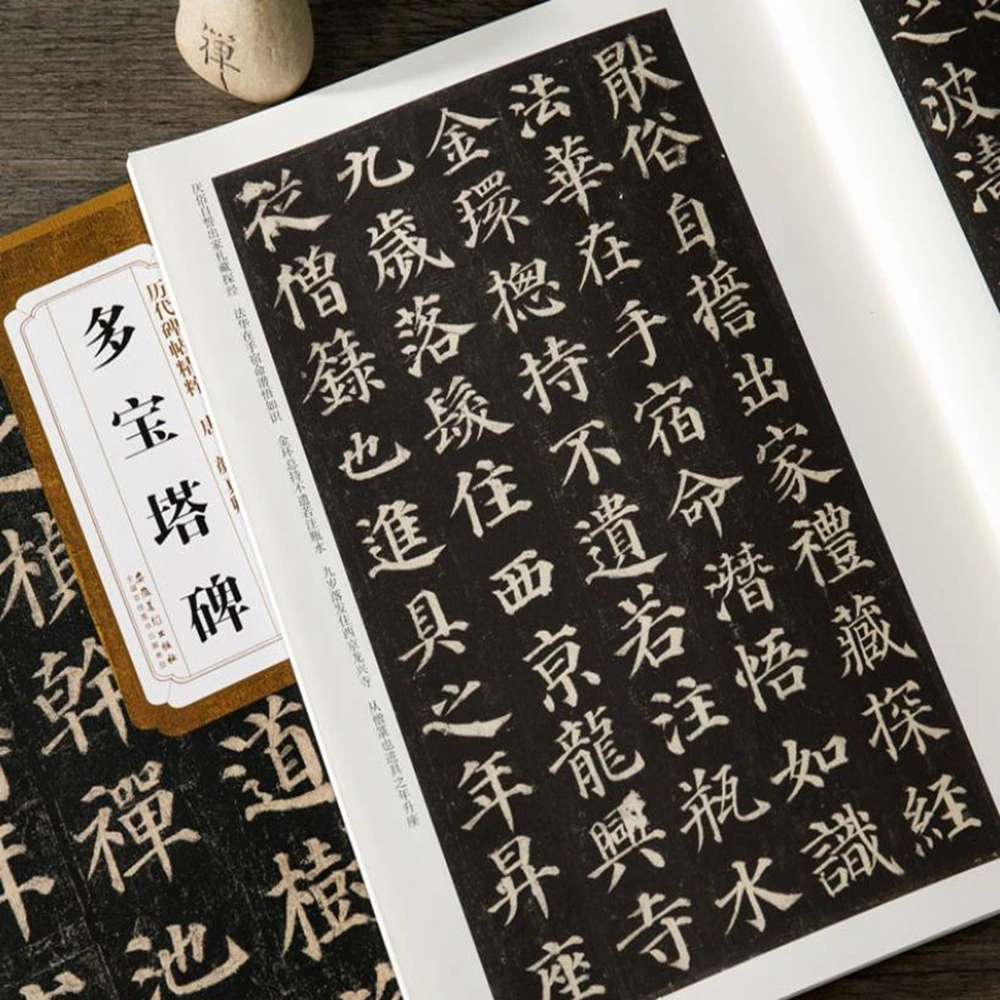 禪
之
波濤
猒俗自誓出家禮藏探經
法華在手宿命潛悟如識
金環揔持不遺若注瓶水
九歲落髮住西京龍興寺
從僧籙也進具之年昇座
厌俗自誓出家礼藏探经 法华在手宿命潜悟如识 金环总持不遗若注瓶水 九岁落发住西京龙兴寺 从僧箓也进具之年升座
历代碑帖精粹 唐
多宝塔碑
安徽美术出版社
全国百佳图书出版单位
道樹
禪池
楨幹